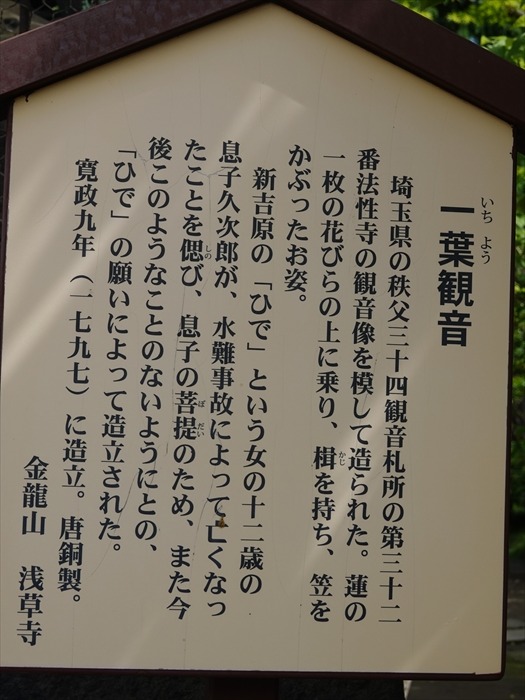 一葉観音
いちよう
埼玉県の秩父三十四観音札所の第三十二
番法性寺の観音像を模して造られた。蓮の
一枚の花びらの上に乗り、楫を持ち、笠を
かじ
かぶったお姿。
新吉原の「ひで」という女の十二歳の
息子久次郎が、水難事故によって亡くなっ
たことを偲び、息子の菩提のため、また今
しの
ぼだい
後このようなことのないようにとの、
「ひで」の願いによって造立された。
寛政九年(一七九七)に造立。唐銅製。
金龍山 浅草寺